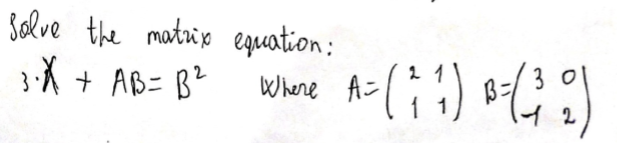 Solve the matrix equation:
3·X + AB = B² Where A = (2 1 B = (3 0
1 1) -1 2)